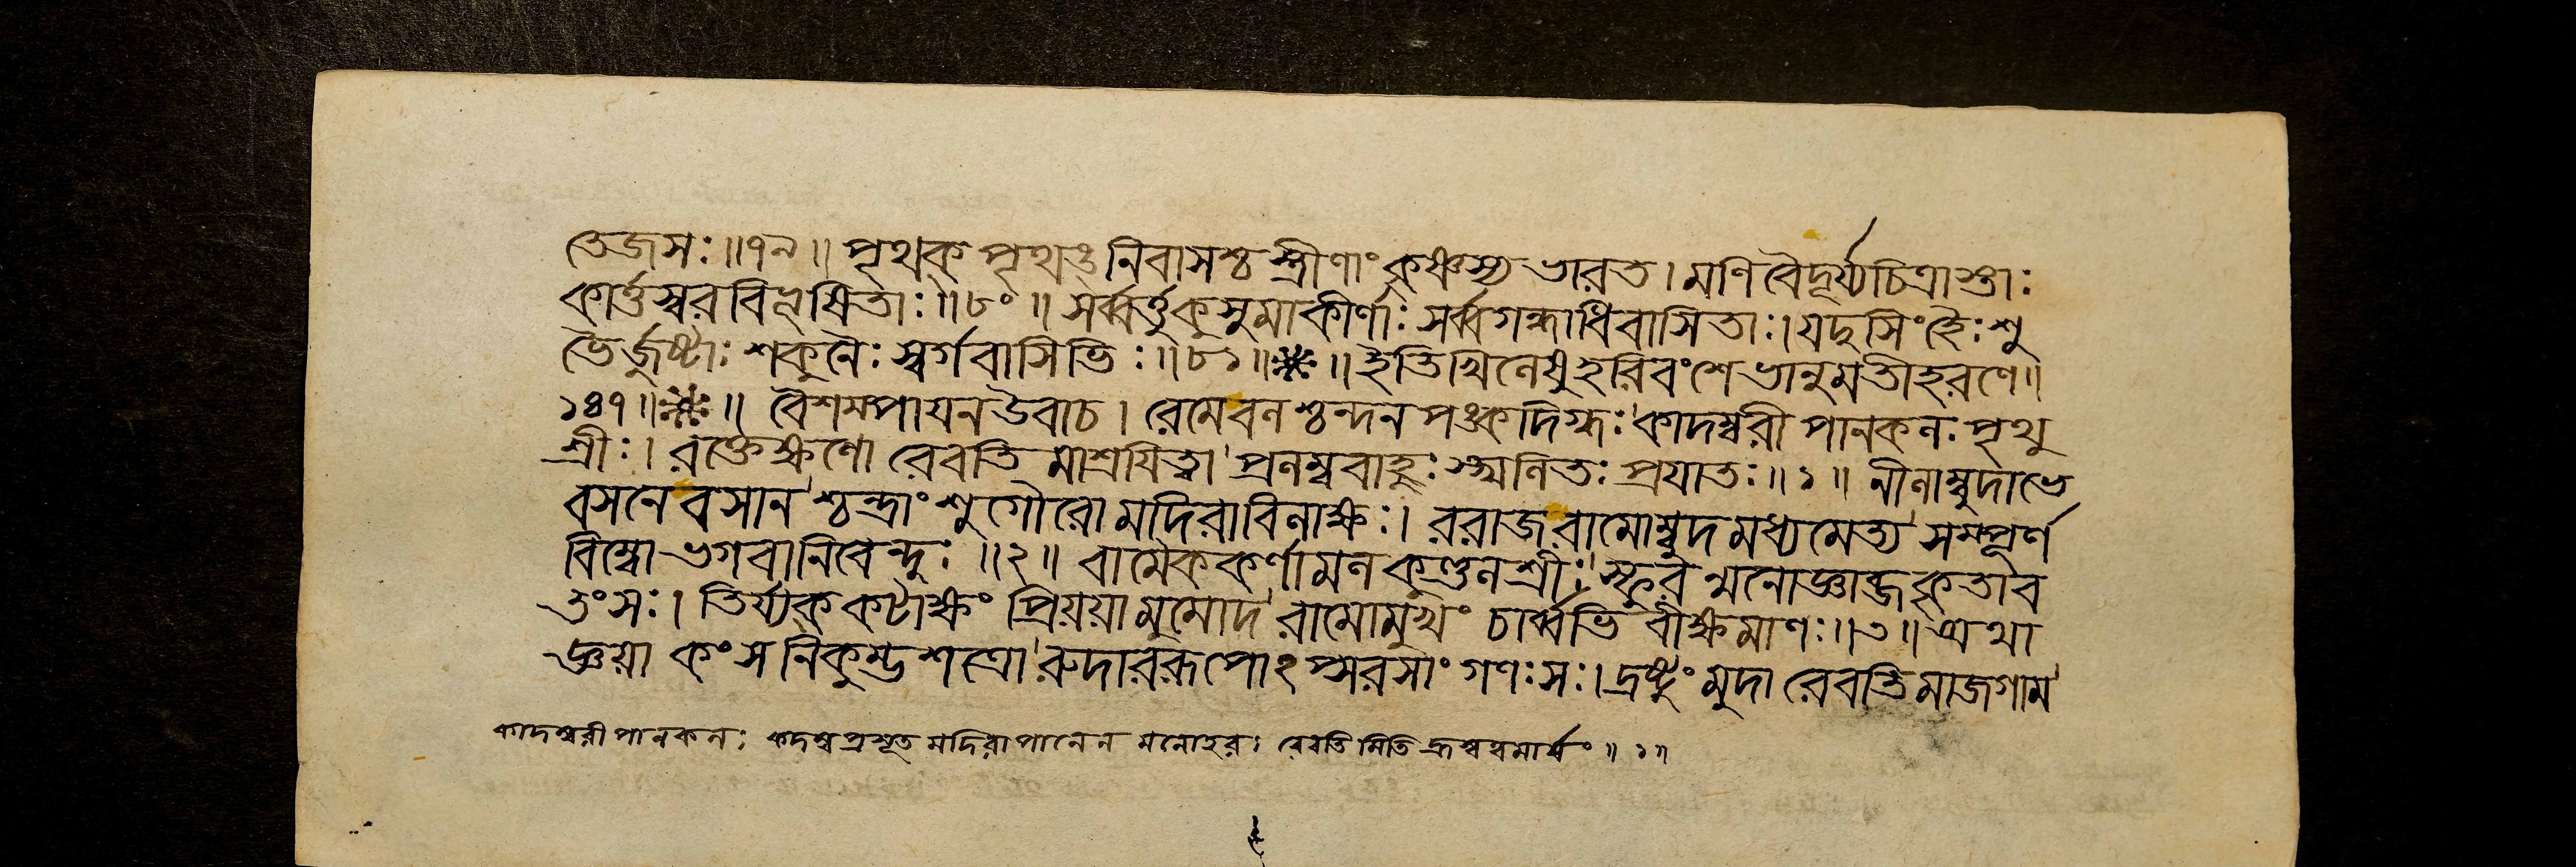 তেজসঃ ॥৭৯॥ পৃথক্ পৃথঙ্নিবাসশ্চ স্ত্রীণাং কৃষ্ণস্য ভারত । মণিবৈদূর্য্যচিত্রাস্তাঃ
কার্ত্তস্বরবিভূষিতাঃ ॥৮০॥ সর্ব্বর্ত্তুকুসুমাকীর্ণাঃ সর্ব্বগন্ধাধিবাসিতাঃ । যদুসিংহৈঃ শু
ভৈর্জুষ্টাঃ শকুনৈঃ স্বর্গবাসিভিঃ ॥৮১॥ * ॥ ইতি খিলেষু হরিবংশে ভানুমতীহরণে ॥
১৪৭ ॥ * ॥ বৈশম্পায়ন উবাচ । রেমে বলশ্চন্দনপঙ্কদিগ্ধঃ কাদম্বরীপানকলঃ পৃথু
শ্রীঃ । রক্তেক্ষণো রেবতিমাশ্রয়িত্বা প্রলম্ববাহুঃ স্খলিতঃ প্রয়াতঃ ॥১॥ নীলাম্বুদাভে
বসনে বসানশ্চন্দ্রাংশুগৌরো মদিরাবিলাক্ষঃ । ররাজ রামোম্বুদমধ্যমেত্য সম্পূর্ণ
বিম্বো ভগবানিবেন্দুঃ ॥২॥ বামৈককর্ণামলকুণ্ডলশ্রীঃ স্ফুরন্মনোজ্ঞাব্জকৃতাব
তংসঃ । তির্য্যক্কটাক্ষং প্রিয়য়া মুমোদ রামো মুখং চার্ব্বভিবীক্ষমাণঃ ॥৩॥ অথা
জ্ঞয়া কংসনিকুম্ভশত্রো রুদাররূপোঽপ্সরসাং গণঃ সঃ । দ্রষ্টুং মুদা রেবতিমাজগাম
কাদম্বরীপানকলঃ কদম্বপ্রসূত মদিরাপানেন মনোহরঃ রেবতিমিতি হ্রস্বত্বমার্ষং ॥১॥